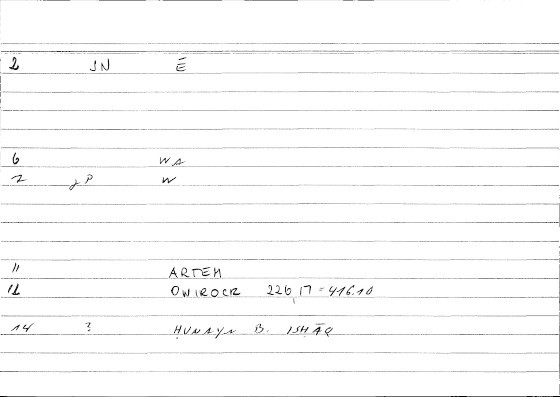 2 JN Ē
6 WA
7 γP W
11 ARTEM
12 OWIROCR 226,17 = 416.10
14 ? ḤUNAYN B. ISḤĀQ